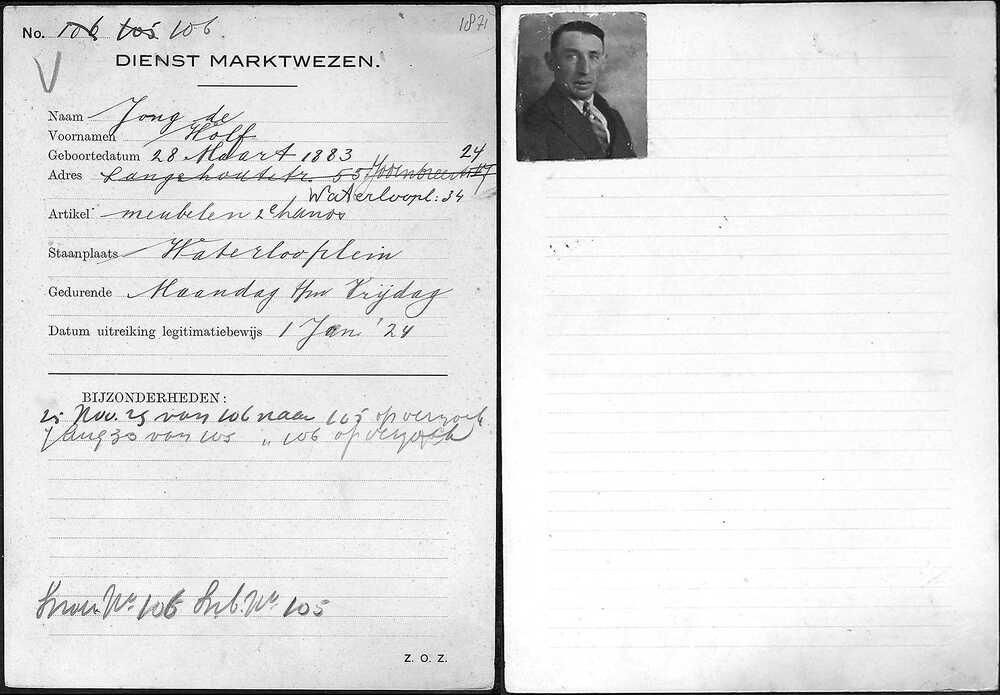 No. 106 105 106. 1871
DIENST MARKTWEZEN.
Naam Jong de
Voornamen Wolf
Geboortedatum 28 Maart 1883 24
Adres Langehoutstr. 55 Jodenbreestr
Waterloopl: 34
Artikel meubelen 2e hands
Staanplaats Waterlooplein
Gedurende Maandag t/m Vrijdag
Datum uitreiking legitimatiebewijs 1 Jan '24
BIJZONDERHEDEN:
25 Nov. 29 van 106 naar 105 op verzoek
7 Aug 30 van 105 " 106 op verzoek
No. 106 No. 105
Z. O. Z.